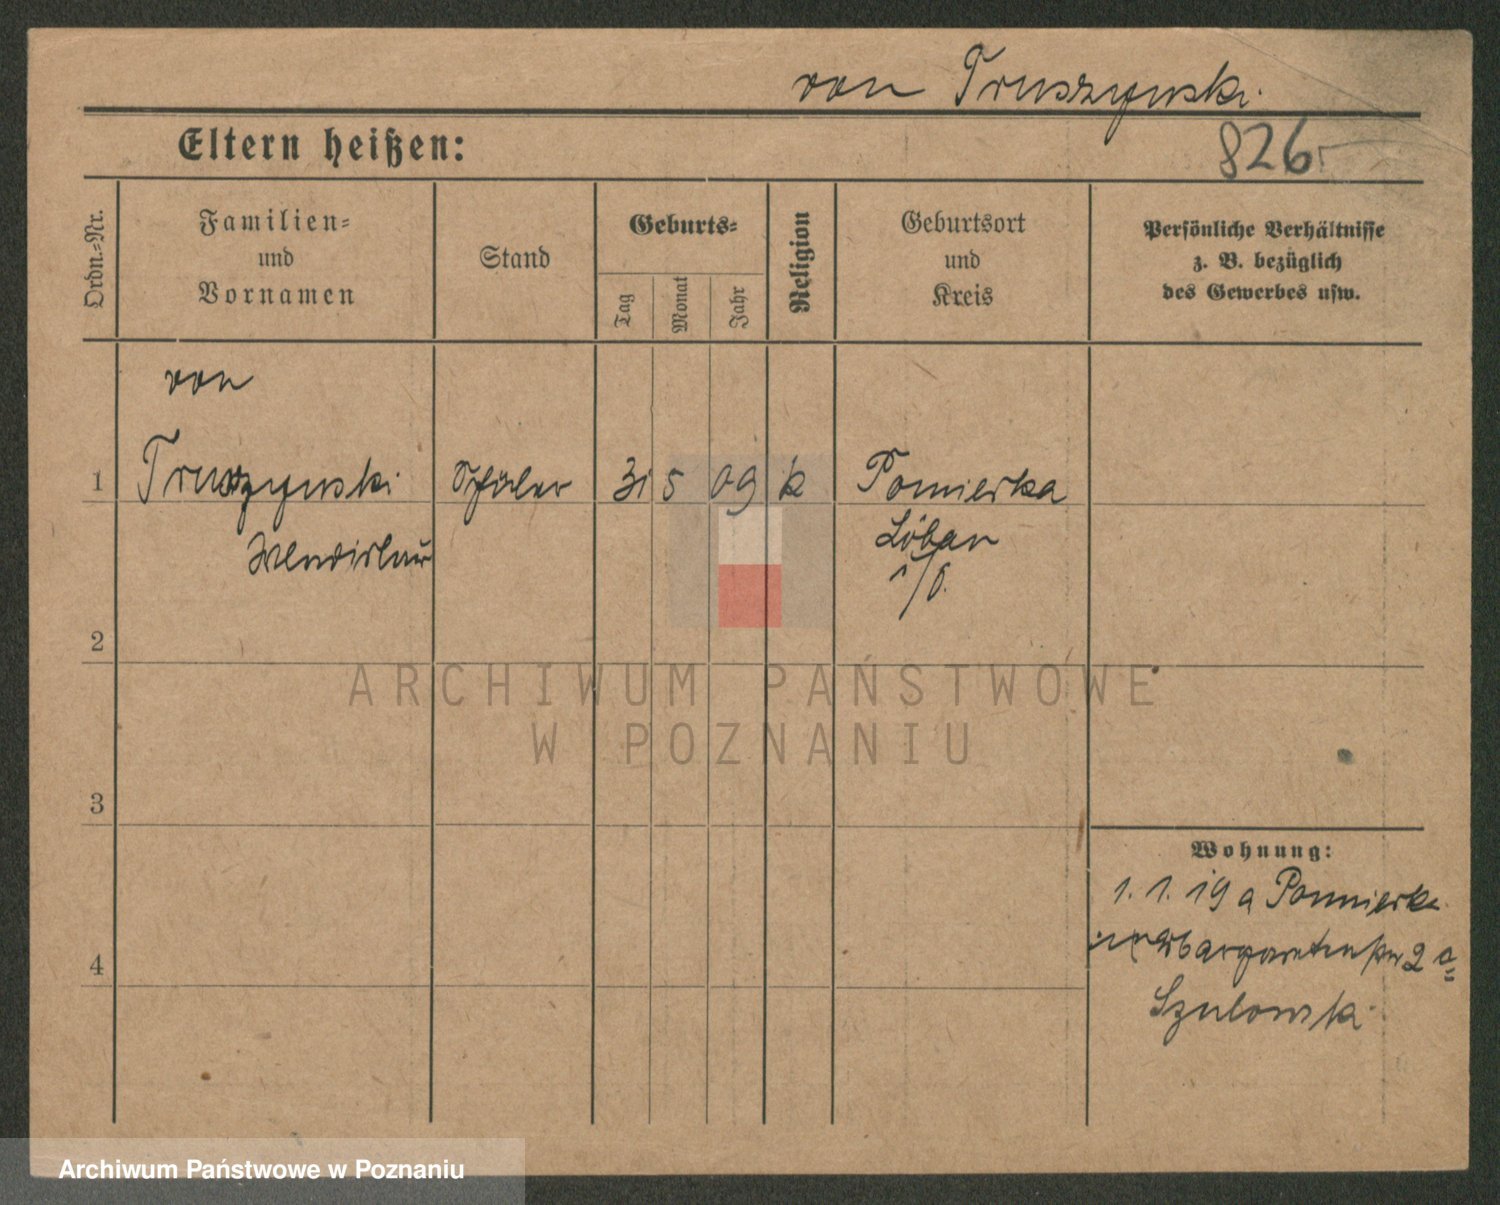 von Truszynski
826
Eltern heißen:
Ordn.-Nr.
Familien-
und
Vornamen
Stand
Geburts-
Tag
Monat
Jahr
Religion
Geburtsort
und
Kreis
Persönliche Verhältnisse
z. B. bezüglich
des Gewerbes usw.
von
1 Truszynski Schüler 31 5 09 k Pomierka
Wladislaus Löbau
2
ARCHIWUM PAŃSTWOWE
W POZNANIU
3
Wohnung:
1. 1. 19 a Pomierka
4
2 a
Archiwum Państwowe w Poznaniu